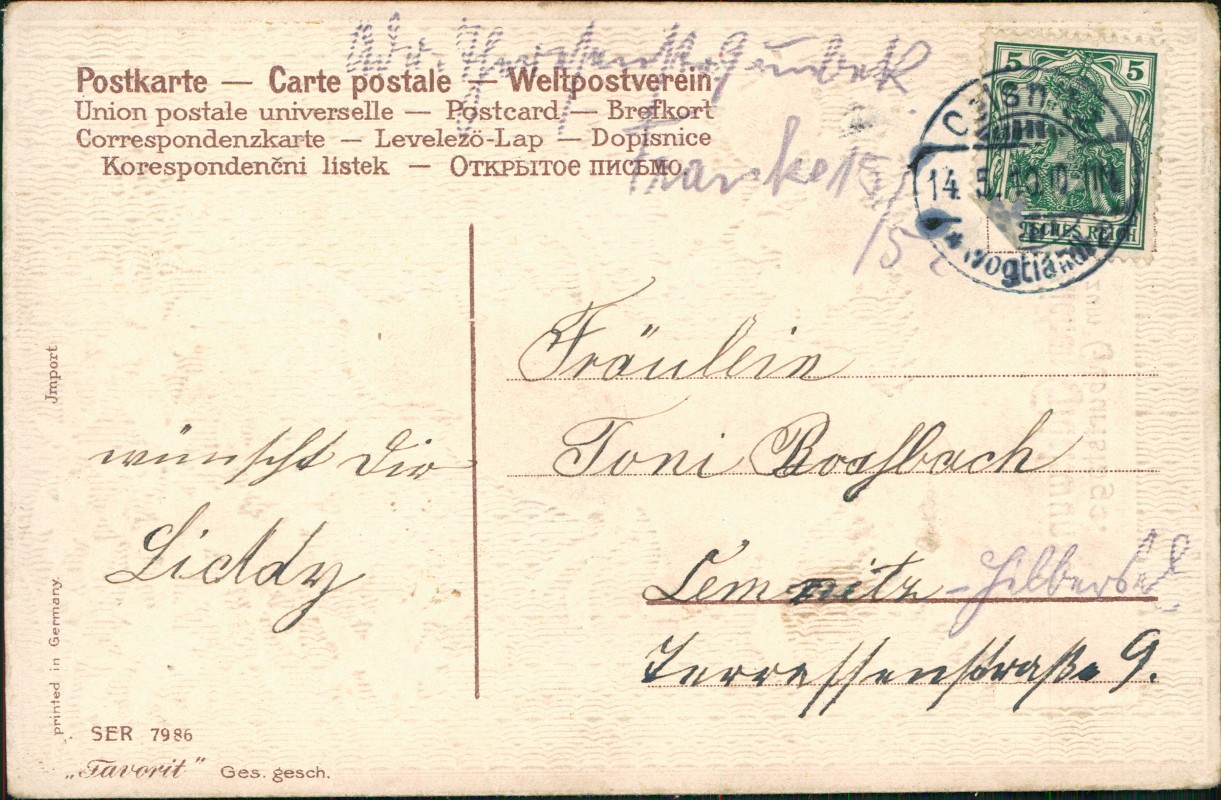 Postkarte — Carte postale — Weltpostverein.
Union postale universelle — Postcard — Brefkort
Correspondenzkarte — Levelező-Lap — Dopisnice
Korespondenčni listek — Открытое письмо.
unbek
Franke 15/5
5 5
14.5.10
Vogtland
SCHES REICH
Fräulein
Toni Roßbach
Lemnitz - Hilbersd
Terrassenstraße 9.
wünscht Dir
Liddy
Jmport
printed in Germany.
SER 7986
„Favorit” Ges. gesch.